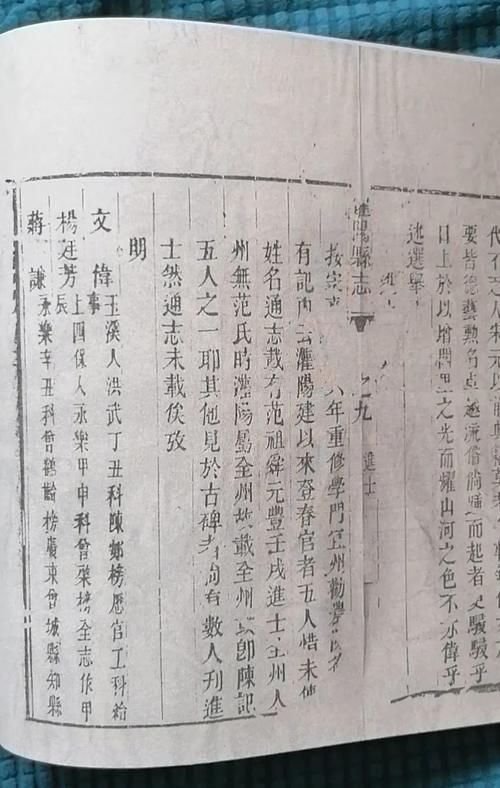 代不乏人
要皆德藝勲名卓越流俗倘而起者又駸駸乎
日上於以增閭里之光而耀山河之色不亦偉乎
述選舉
縣志
之九
進士
按
年重修學門宜州勸學
有記內云灌陽建以來登春官者五人惜未
姓名通志載有范祖舜元豐壬戌進士全州人
州無范氏時灌陽屬全州載全州即陳記
五人之一耶其他見於古碑者尚有數人刊進
士然通志未載俟攷
明
文偉 玉溪人洪武丁丑科陳䢿榜歷官工科給
事
楊廷芳 上四保人永樂甲申科曾棨榜全志作甲
辰
蔣謙 永樂辛丑科曾鶴齡榜廣東曾城縣知縣